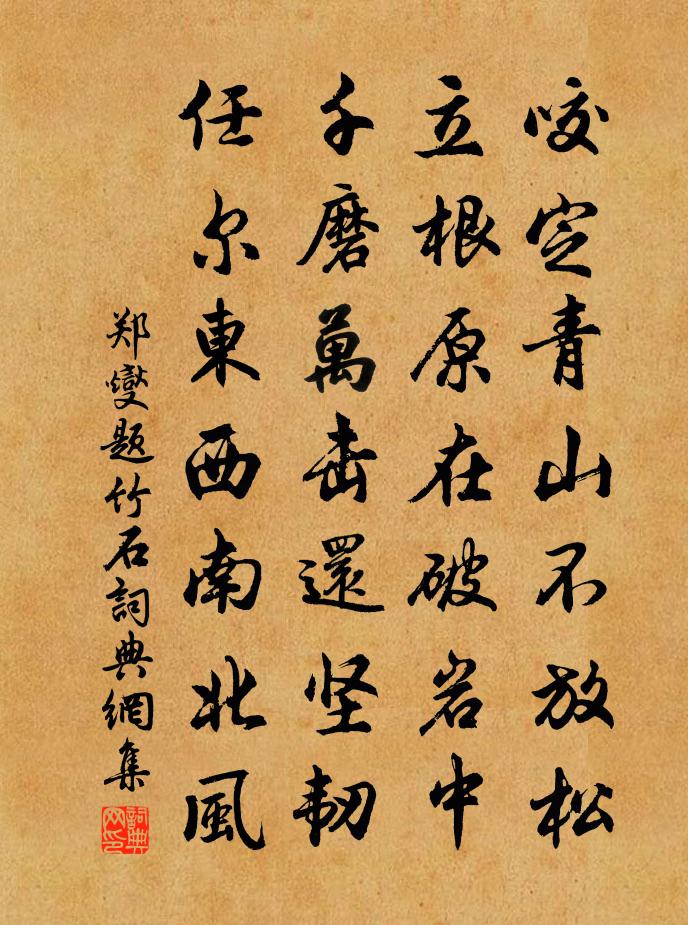 咬定青山不放松
立根原在破岩中
千磨萬击還坚韧
任尔東西南北風
郑燮题竹石詞典網集
詞典网印